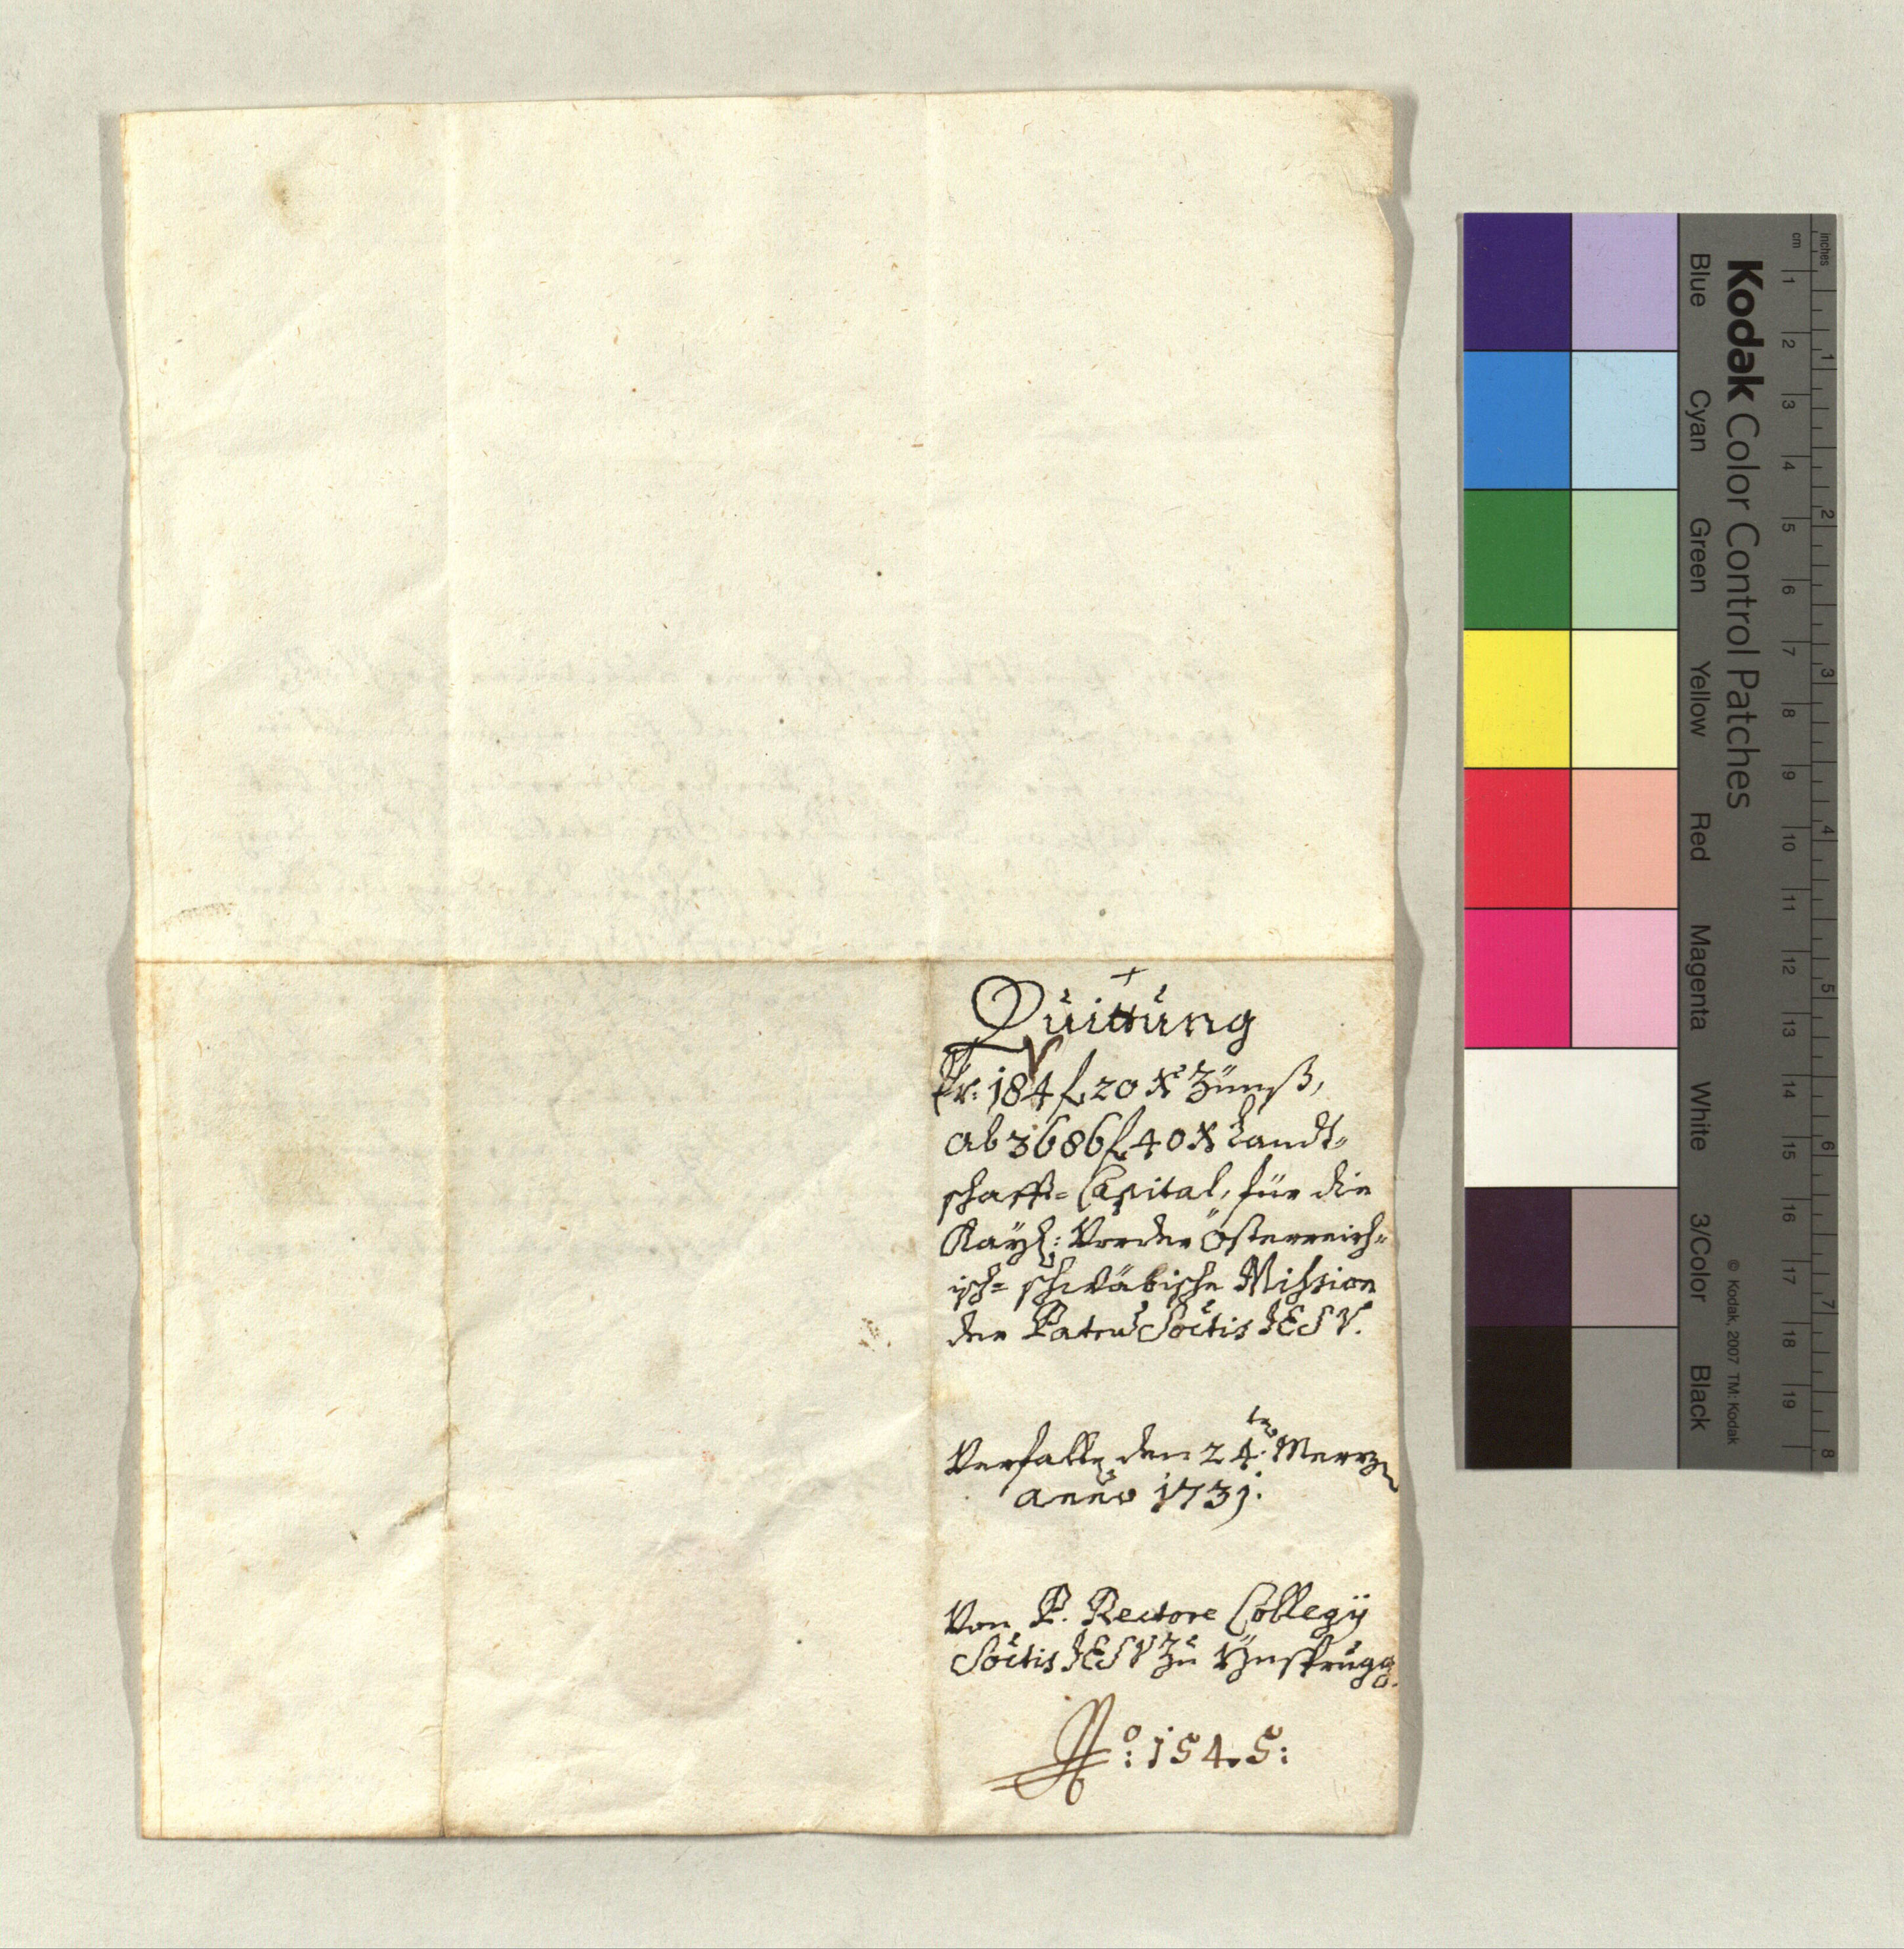 Quittung
Pr: 184 f 20 x Zünß,
ab 3686 f 40 x Landt-
schafft- Capital, für die
Kayß: Vorder Österreich-
isch- schwäbische Mission
der Patrū Soc̄tis JESV.
Verfallē den 24.ten Merzen
anno 1731.
Von P. Rectore Collegÿ
Soc̄tis JESV Zu Ynsprugg.
No: 1545:
Kodak Color Control Patches
Blue
Cyan
Green
Yellow
Red
Magenta
White
3/Color
Black
© Kodak, 2007 TM: Kodak
inches
1 2 3 4 5 6 7 8
cm
1 2 3 4 5 6 7 8 9 10 11 12 13 14 15 16 17 18 19